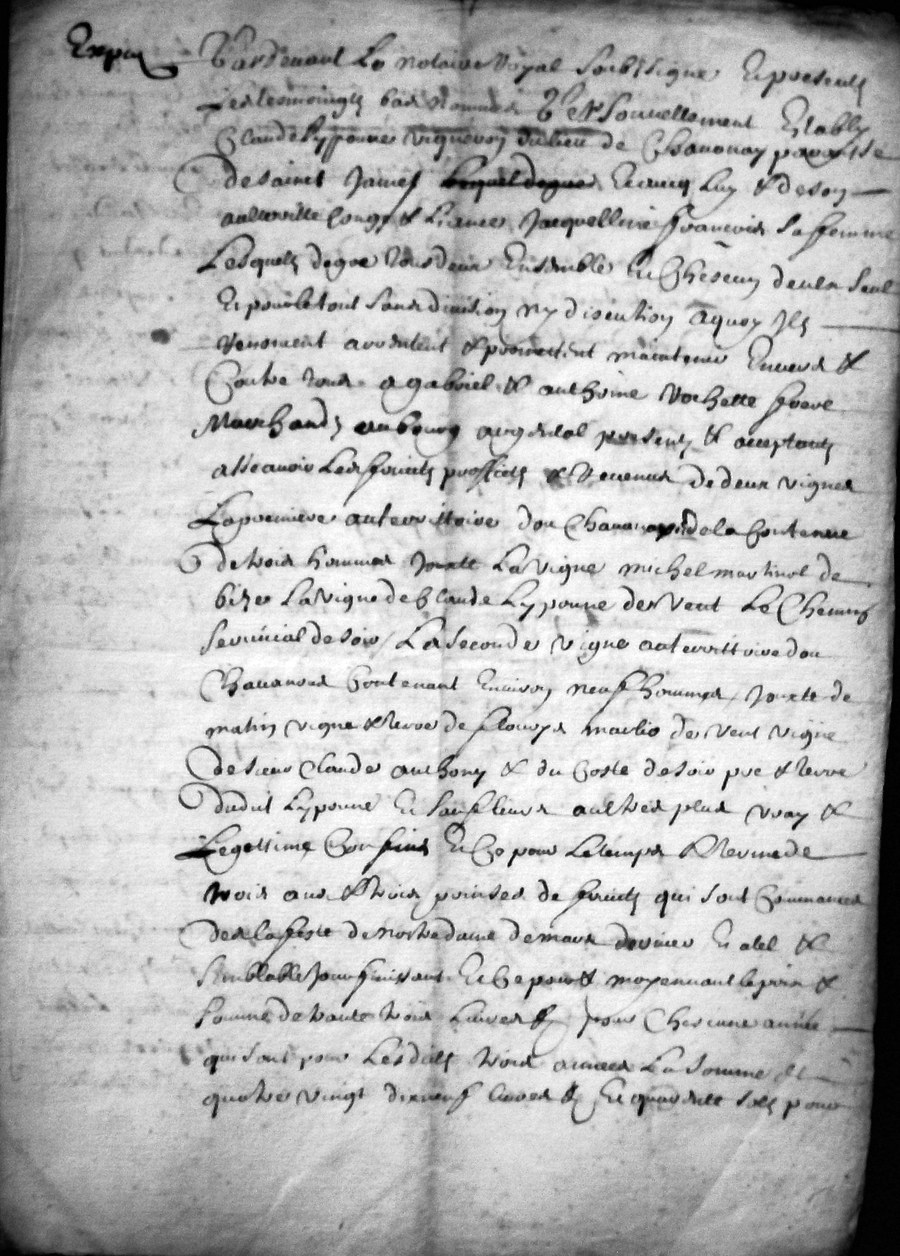 Expie
Pardevant Le notaire Royal soubsigne Et presents
Les tesmoingts bas nommes Et Etably
Claude Lyponne vigneron du lieu de Chavanay parroisse
de sainct James lequel de gre luy & de son
authorite & Licence Jacquelline francois sa femme
Lesquels de gre tous deux Ensemble Et Chescung deulx seul
Et pour le tout sans division ny discution a quoy Ils
Renoncent & promettent maintenir Envers &
Contre tous a gabriel & anthoine Rochette frere
Marchands au bourg argental presents & acceptants
assavoir Les fruicts profficts & Revenus de deux vignes
La premiere au territoire dou de la Contenue
de trois hommes Jouxte La vigne michel martinol de
bize La vigne de Claude Lyponne de Vent Le Chemin
servicial de soir La seconde vigne au territoire dou
Chavanas Contenant Environ neuf hommes Jouxte de
matin vigne & terre de de Vent vigne
de sieur Claude anthony & du Coste de soir pre & terre
dudit Lyponne Et sauf leurs aultres plus vray &
Legettime Confins Et Ce pour Le temps & terme de
trois ans & trois prinses de fruicts qui sont Commances
des la feste de nostre dame de mars dernier Et a tel &
semblable Jour finissant Et Ce pour & moyennant le prix &
somme de trante trois Livres pour Chescune annee
qui sont pour Lesdits trois annees La somme de
quatre vingt dixneuf livres Et sols pour